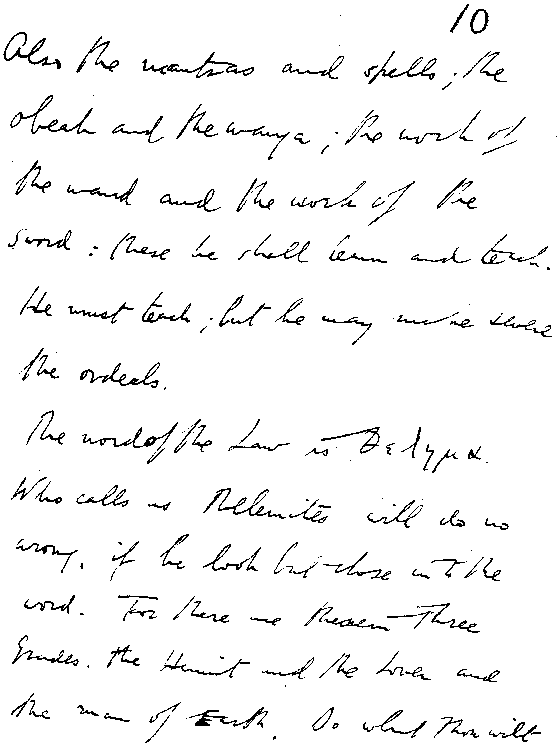 10
Also the mantras and spells; the
obeah and the wanga; the work of
the wand and the work of the
sword: these he shall learn and teach.
He must teach; but he may make severe
the ordeals.
The word of the Law is Θελημα.
Who calls us Thelemites will do no
wrong, if he look but close into the
word. For there are therein Three
Grades. the Hermit and the Lover and
the man of Earth. Do what thou wilt